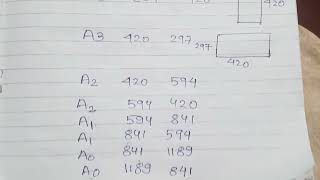 420
A3 420 297 297
420
A2 420 594
A2 594 420
A1 594 841
A1 841 594
A0 841 1189
A0 1189 841